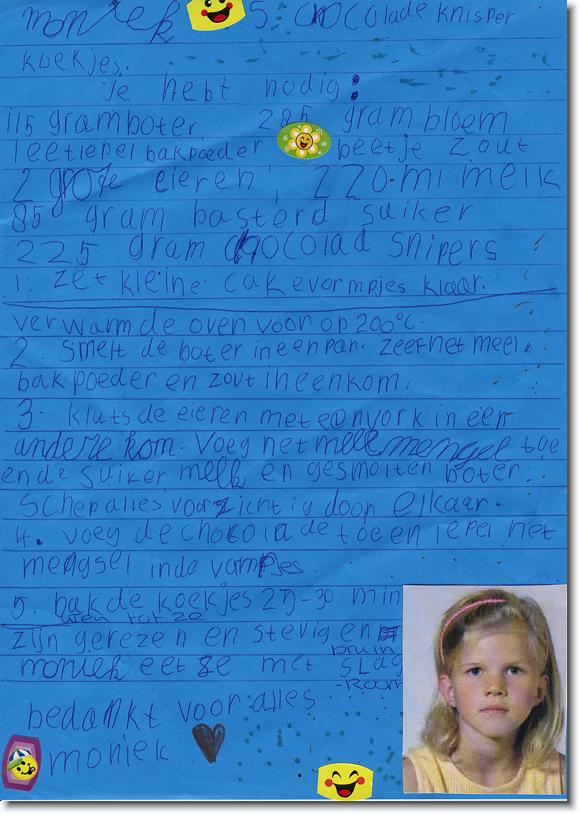 moniek 5. chocolade knisper
koekjes.
Je hebt nodig:
115 gram boter 285 gram bloem
1 eetlepel bakpoeder beetje zout
2 grote eieren, 220.ml melk
85 gram basterd suiker
225 gram chocolad snipers
1. zet kleine cakevormpjes klaar.
verwarm de oven voor op 200°C.
2. smelt de boter in een pan. zeef het meel.
bakpoeder en zout in een kom.
3. kluts de eieren met een vork in een
andere kom. Voeg het mengel toe
en de suiker melk en gesmolten boter.
schep alles voorzichtig door elkaar.
4. voeg de chocolade toe en lepel het
mengsel in de vormpjes
5. bak de koekjes 25-30 min
uren tot ze
zijn gerezen en stevig en
bruin
moniek eet ze met slag
-room
bedankt voor alles
moniek